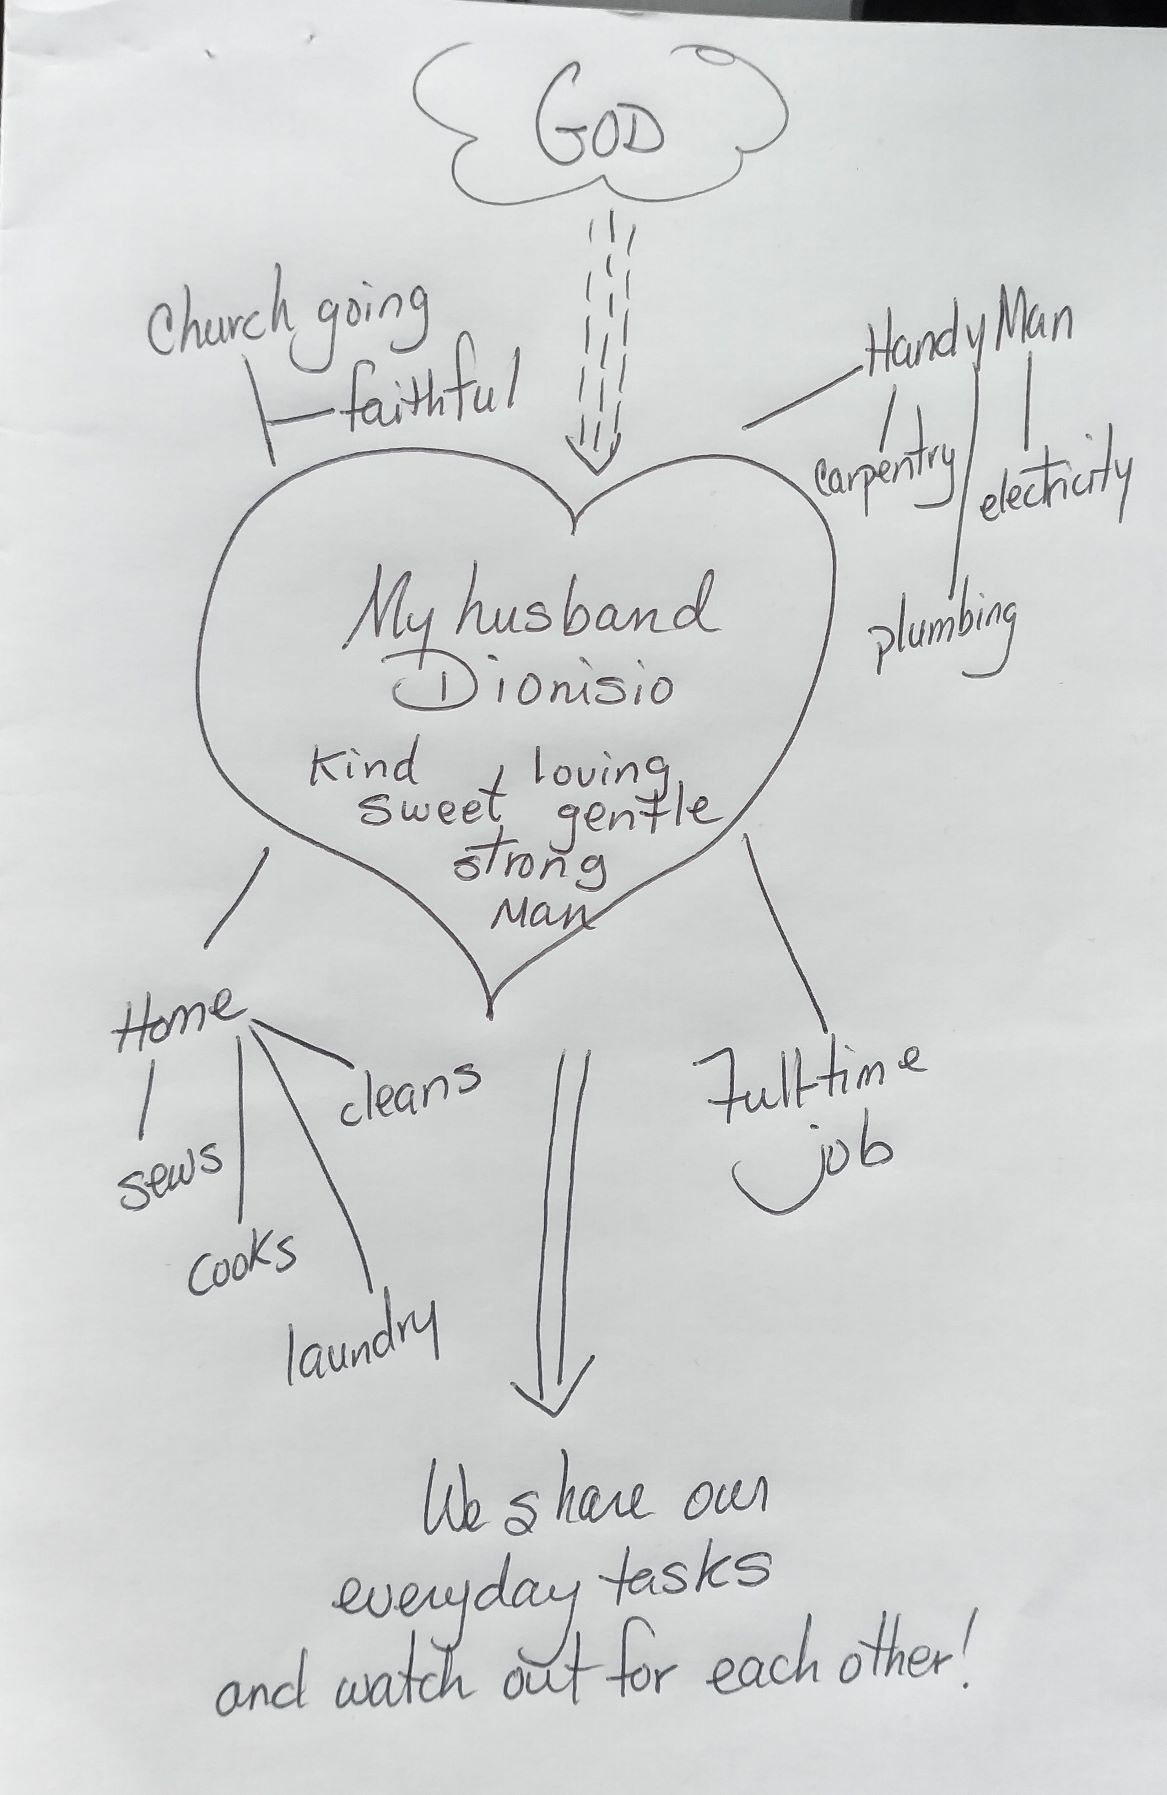 GOD
Church going
faithful
HandyMan
carpentry
electricity
plumbing
My husband
Dionisio
Kind loving
sweet gentle
strong
Man
Home
cleans
sews
cooks
laundry
Full-time
job
We share our
everyday tasks
and watch out for each other!